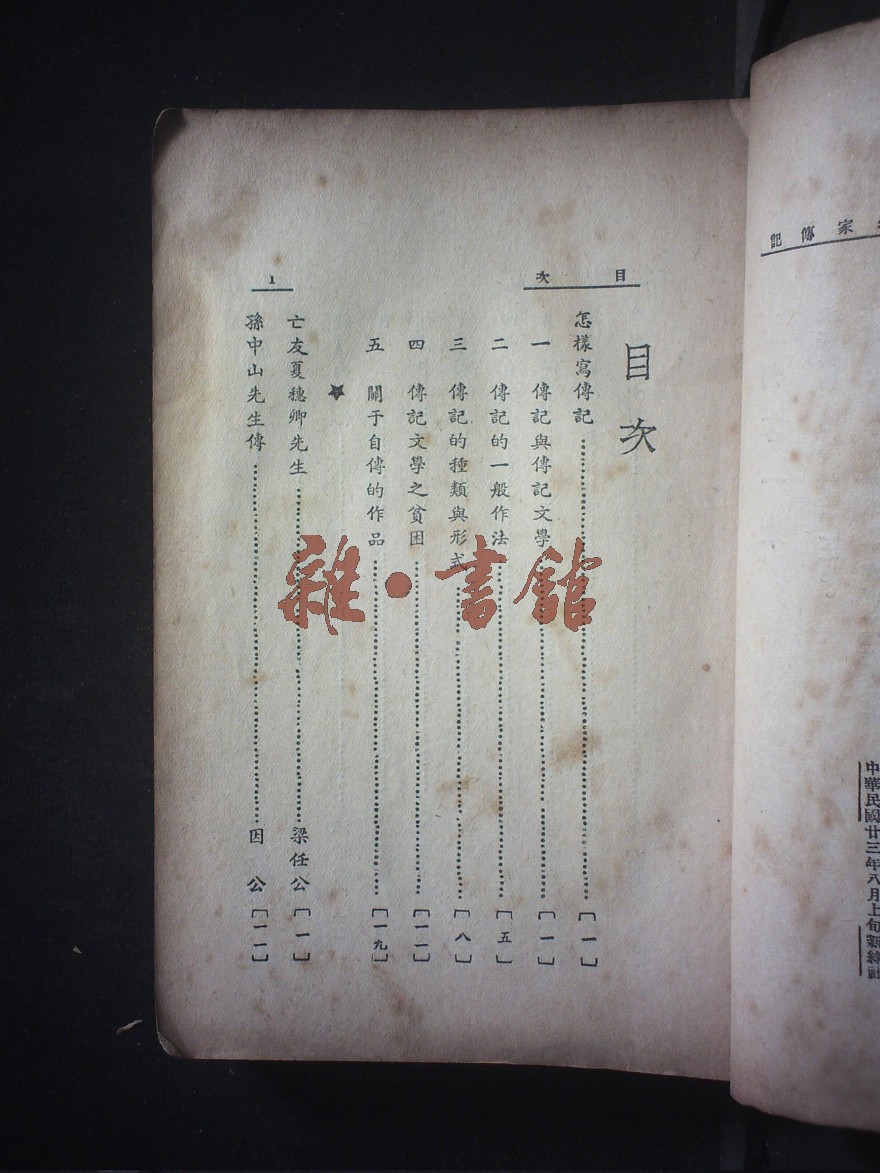 家傳記
中華民國廿三年八月上旬新
目次
目次
怎樣寫傳記[一]
一 傳記與傳記文學[一]
二 傳記的一般作法[五]
三 傳記的種類與形式[八]
四 傳記文學之貧困[一一]
五 關于自傳的作品[一九]
★
亡友夏穗卿先生 梁任公[一]
孫中山先生傳 因公[一一]
1
雜·書館